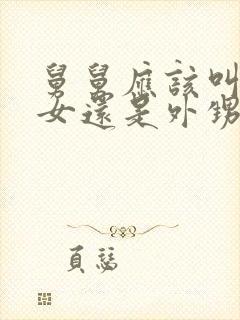 舅舅應該叫
女還是外甥
頁慧